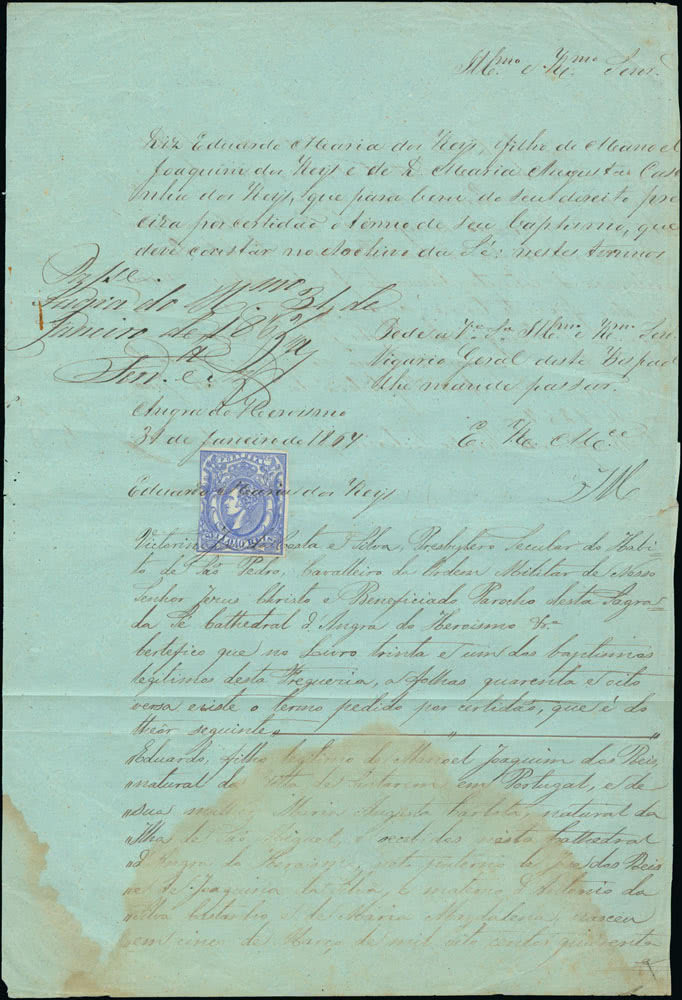 Illmo. e Rmo. Senr.
Diz Eduardo Maria dos Reys, filho de Manoel
Joaquim dos Reys e de D. Maria Augusta Cas
tinha dos Reys, que para bem do seu direito pre
ciza por certidão o termo de seu baptismo, que
deve cosistar no Archivo da Sé: nestes termos
P.
do 31 de
Janeiro de 1867
Pede a Va. Sa. Illma. e Rma. Senr.
Vigario Geral deste Bispado
lhe mande passar.
Angra do Heroismo
31 de Janeiro de 1867
E. R. Mce.
Eduardo Maria dos Reys
PORTUGAL
Victorino Costa e Silva, Presbytero Secular do Habi=
to de São Pedro, Cavalleiro da Ordem Militar de Nosso
Senhor Jesus Christo e Beneficiado Parocho desta Sagra=
da Sé Cathedral d'Angra do Heroismo &a.
Certefico que no Livro trinta e um dos baptismos
legitimos desta Freguezia, a folhas quarenta e oito
verso existe o termo pedido por certidão, que é do
theôr seguinte
Eduardo, filho legitimo de Manoel Joaquim dos Reis,
"natural da de Santarem em Portugal, e de
"sua mulher Maria Augusta Carlota, natural da
"Ilha de São Miguel, e recebidos nesta Cathedral
"d'Angra do Heroismo, neto paterno de José dos Reis
"e de Joaquina da Silva, e materno d'Antonio da
"Silva e de Maria Magdalena, nasceu
"em cinco de Março de mil oito centos quarenta